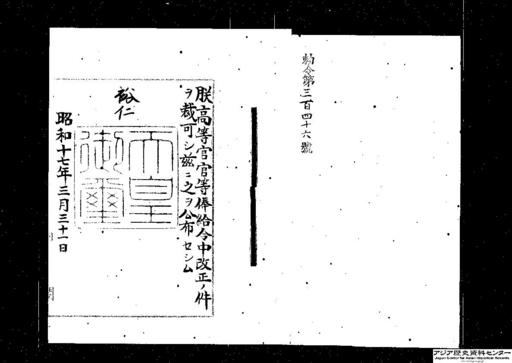 勅令第三百四十六號
朕高等官官等俸給令中改正ノ件
ヲ裁可シ茲ニ之ヲ公布セシム
裕仁
天皇
御璽
昭和十七年三月三十一日
アジア歴史資料センター
Japan Center for Asian Historical Records